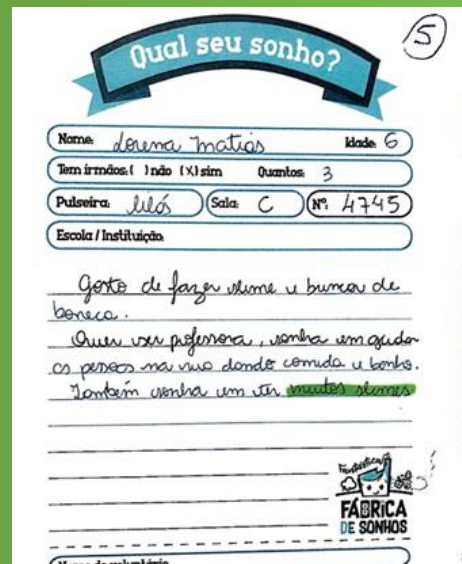 Qual seu sonho?
5
Nome: Lorena Matias Idade: 6
Tem irmãos: ( ) não (X) sim Quantos: 3
Pulseira: lilás Sala: C Nº: 4745
Escola / Instituição:
Gosto de fazer slime e brincar de
boneca.
Quer ser professora, sonha em ajudar
as pessoas na rua dando comida e banho.
Também sonha em ter muitos slimes.
Fantástica
FÁBRICA
DE SONHOS